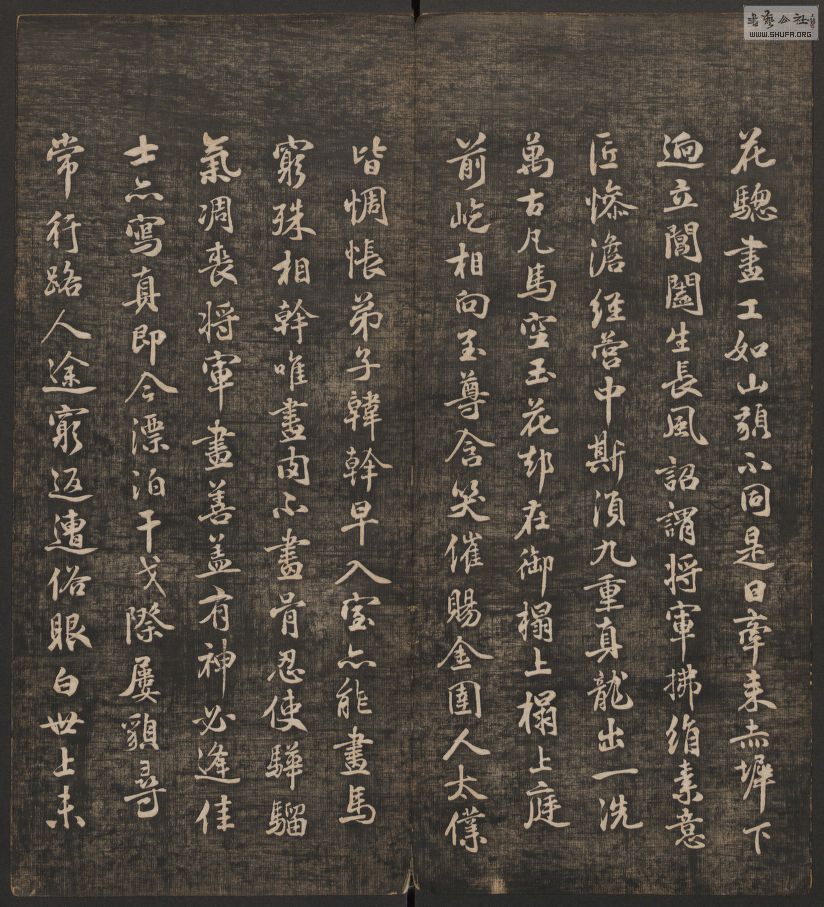 花驄畫工如山貌不同是日牽来赤墀下
逈立閶闔生長風詔謂将軍拂绢素意
匠惨澹經營中斯湏九重真龍出一洗
萬古凡馬空玉花却在御榻上榻上庭
前屹相向至尊含笑催賜金圉人太僕
皆惆悵弟子韓幹早入室亦能畫馬
窮殊相幹唯畫肉不畫骨忍使驊騮
氣凋喪将軍畫善盖有神必逢佳
士亦寫真即今漂泊干戈際屢貌尋
常行路人途窮返遭俗眼白世上未
书艺公社
WWW.SHUFA.ORG